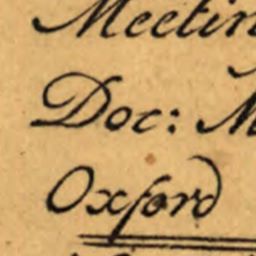 Meetin
Doc: M
Oxford